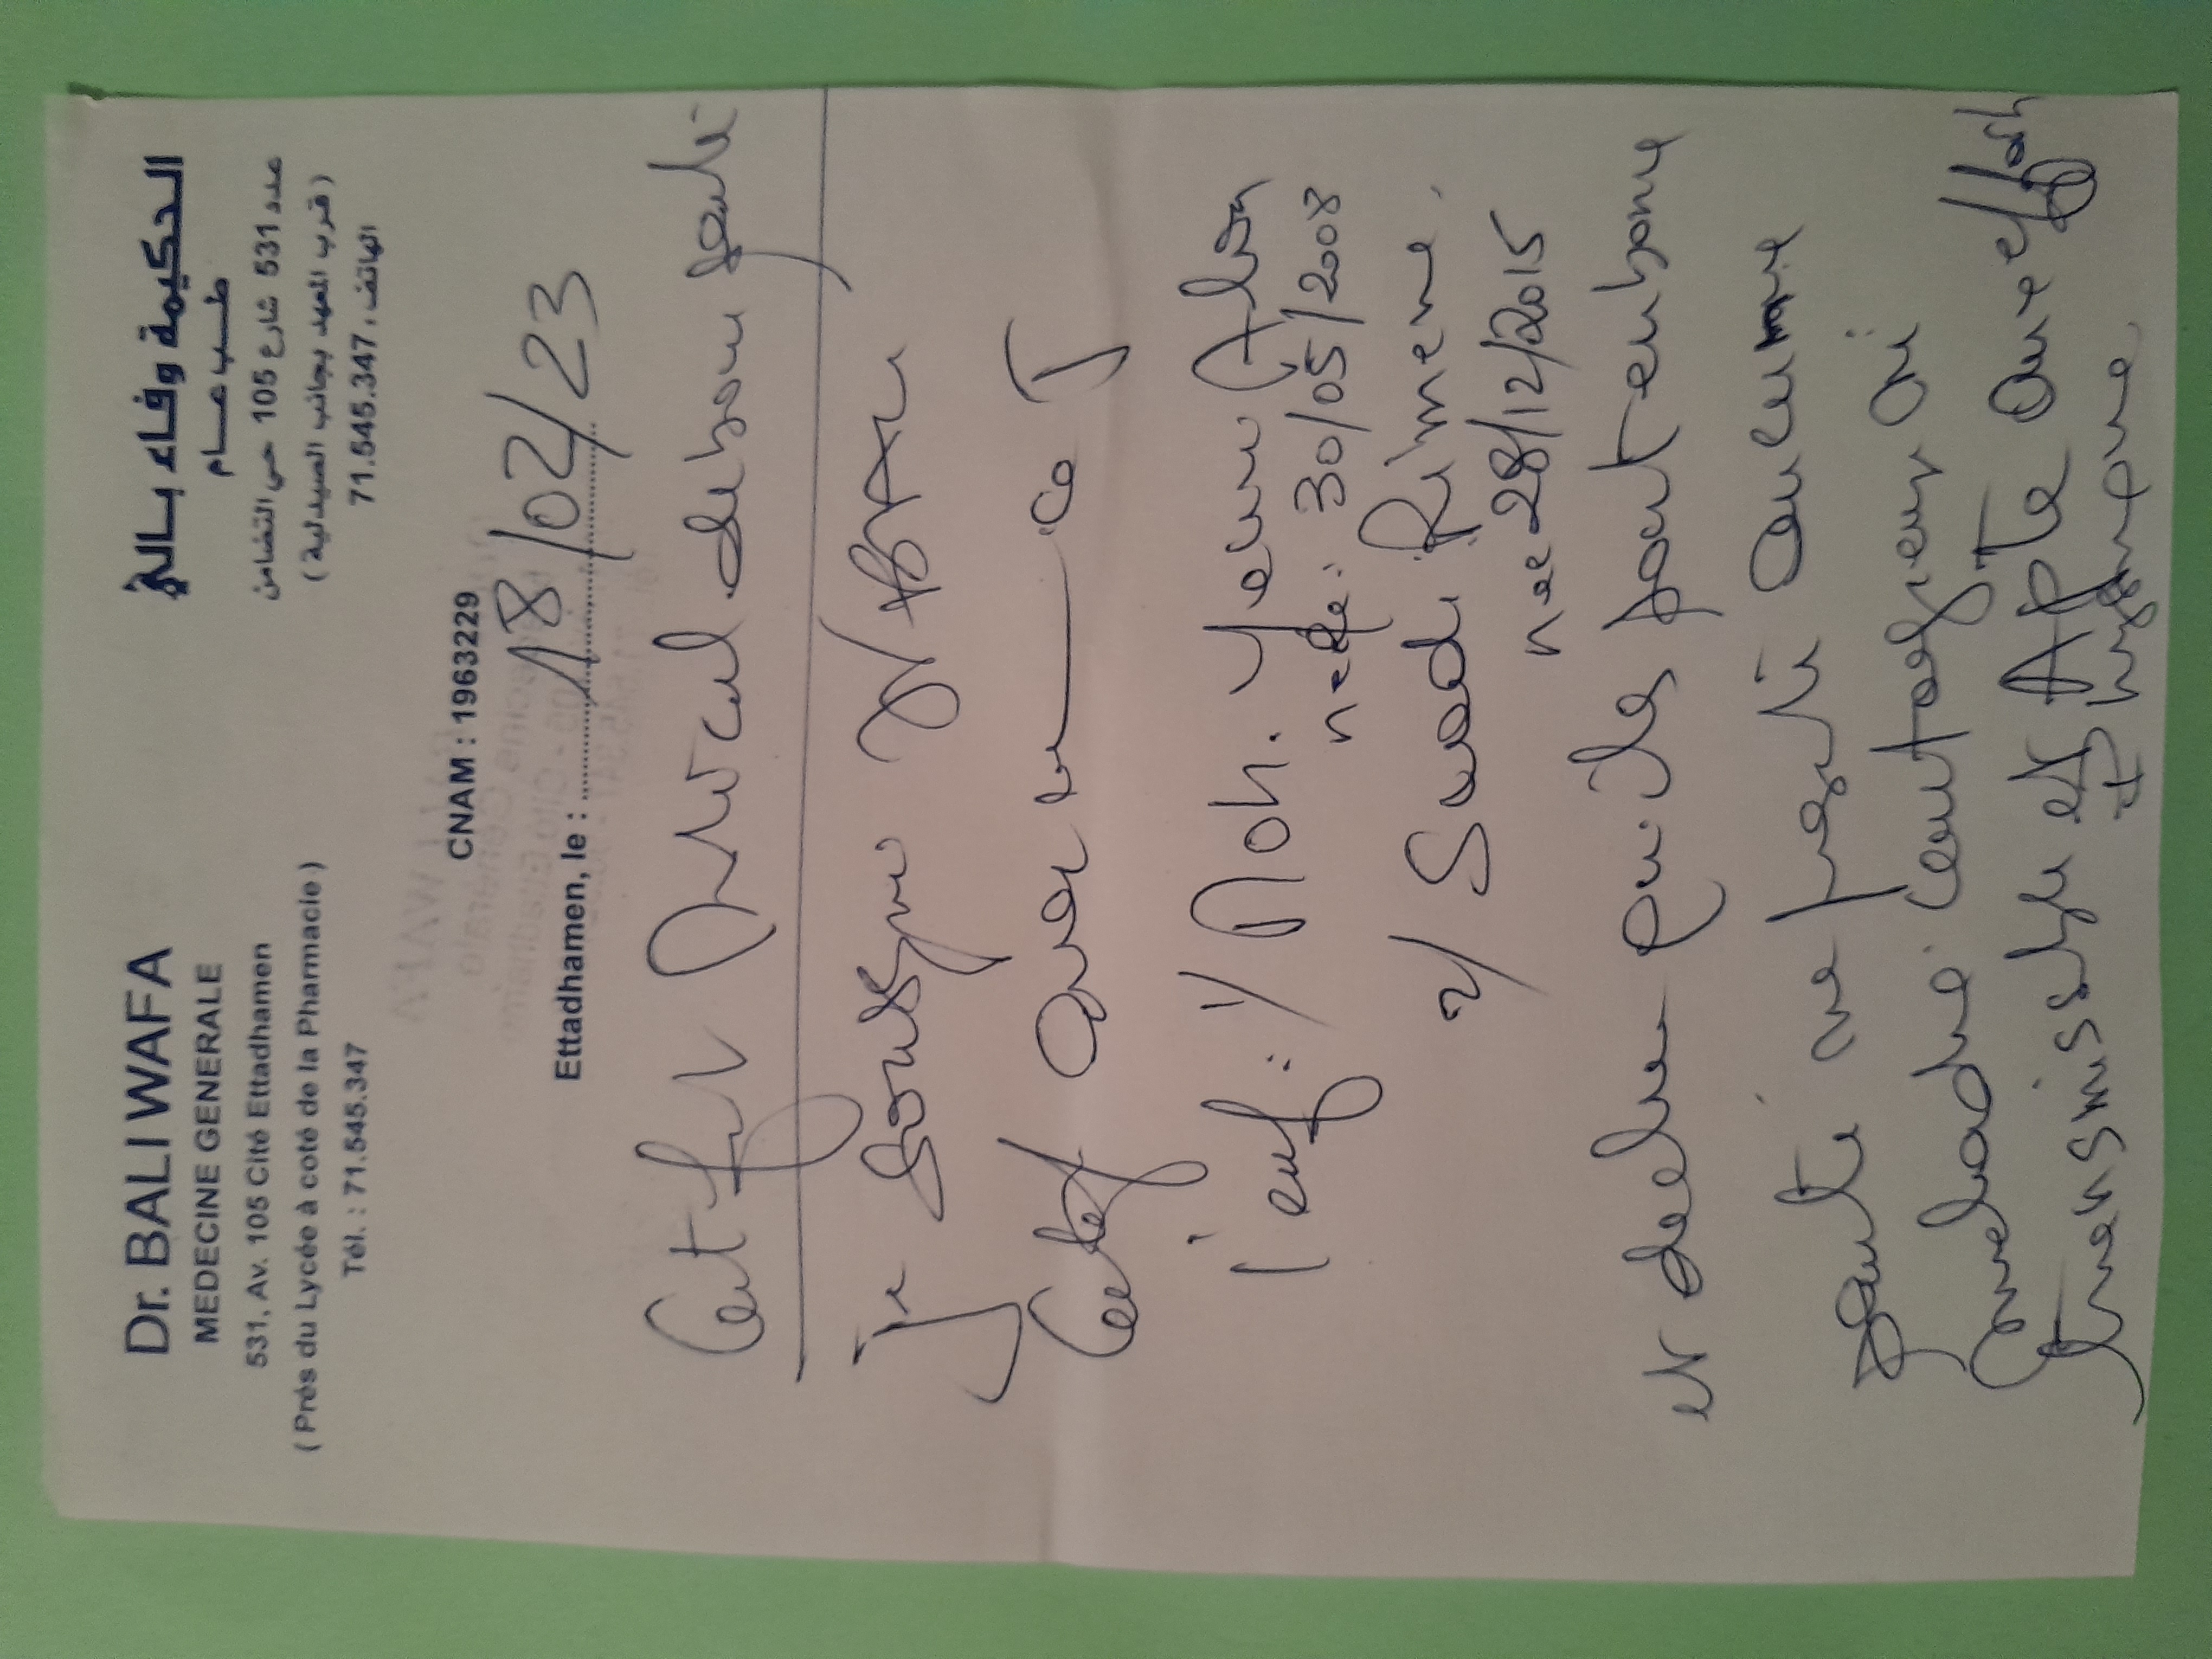 Dr. BALI WAFA
MEDECINE GENERALE
531, Av. 105 Cité Ettadhamen
( Prés du Lycée à coté de la Pharmacie )
Tél. : 71.545.347
الحكيمة وفاء بالي
طب عام
عدد 531 شارع 105 حي التضامن
( قرب المعهد بجانب الصيدلية )
الهاتف : 71.545.347
CNAM : 1963229
Ettadhamen, le : 18/02/23
Certif Médical de bonne santé
je soussigné Dr
Certif avoir
1/ Moh.
née: 30/05/2008
2/ Suadi Rimene
née 28/12/2015
et déclare qu'ils sont en bonne
santé ne porte aucune
maladie contagieuse ni
transmissible et Apte